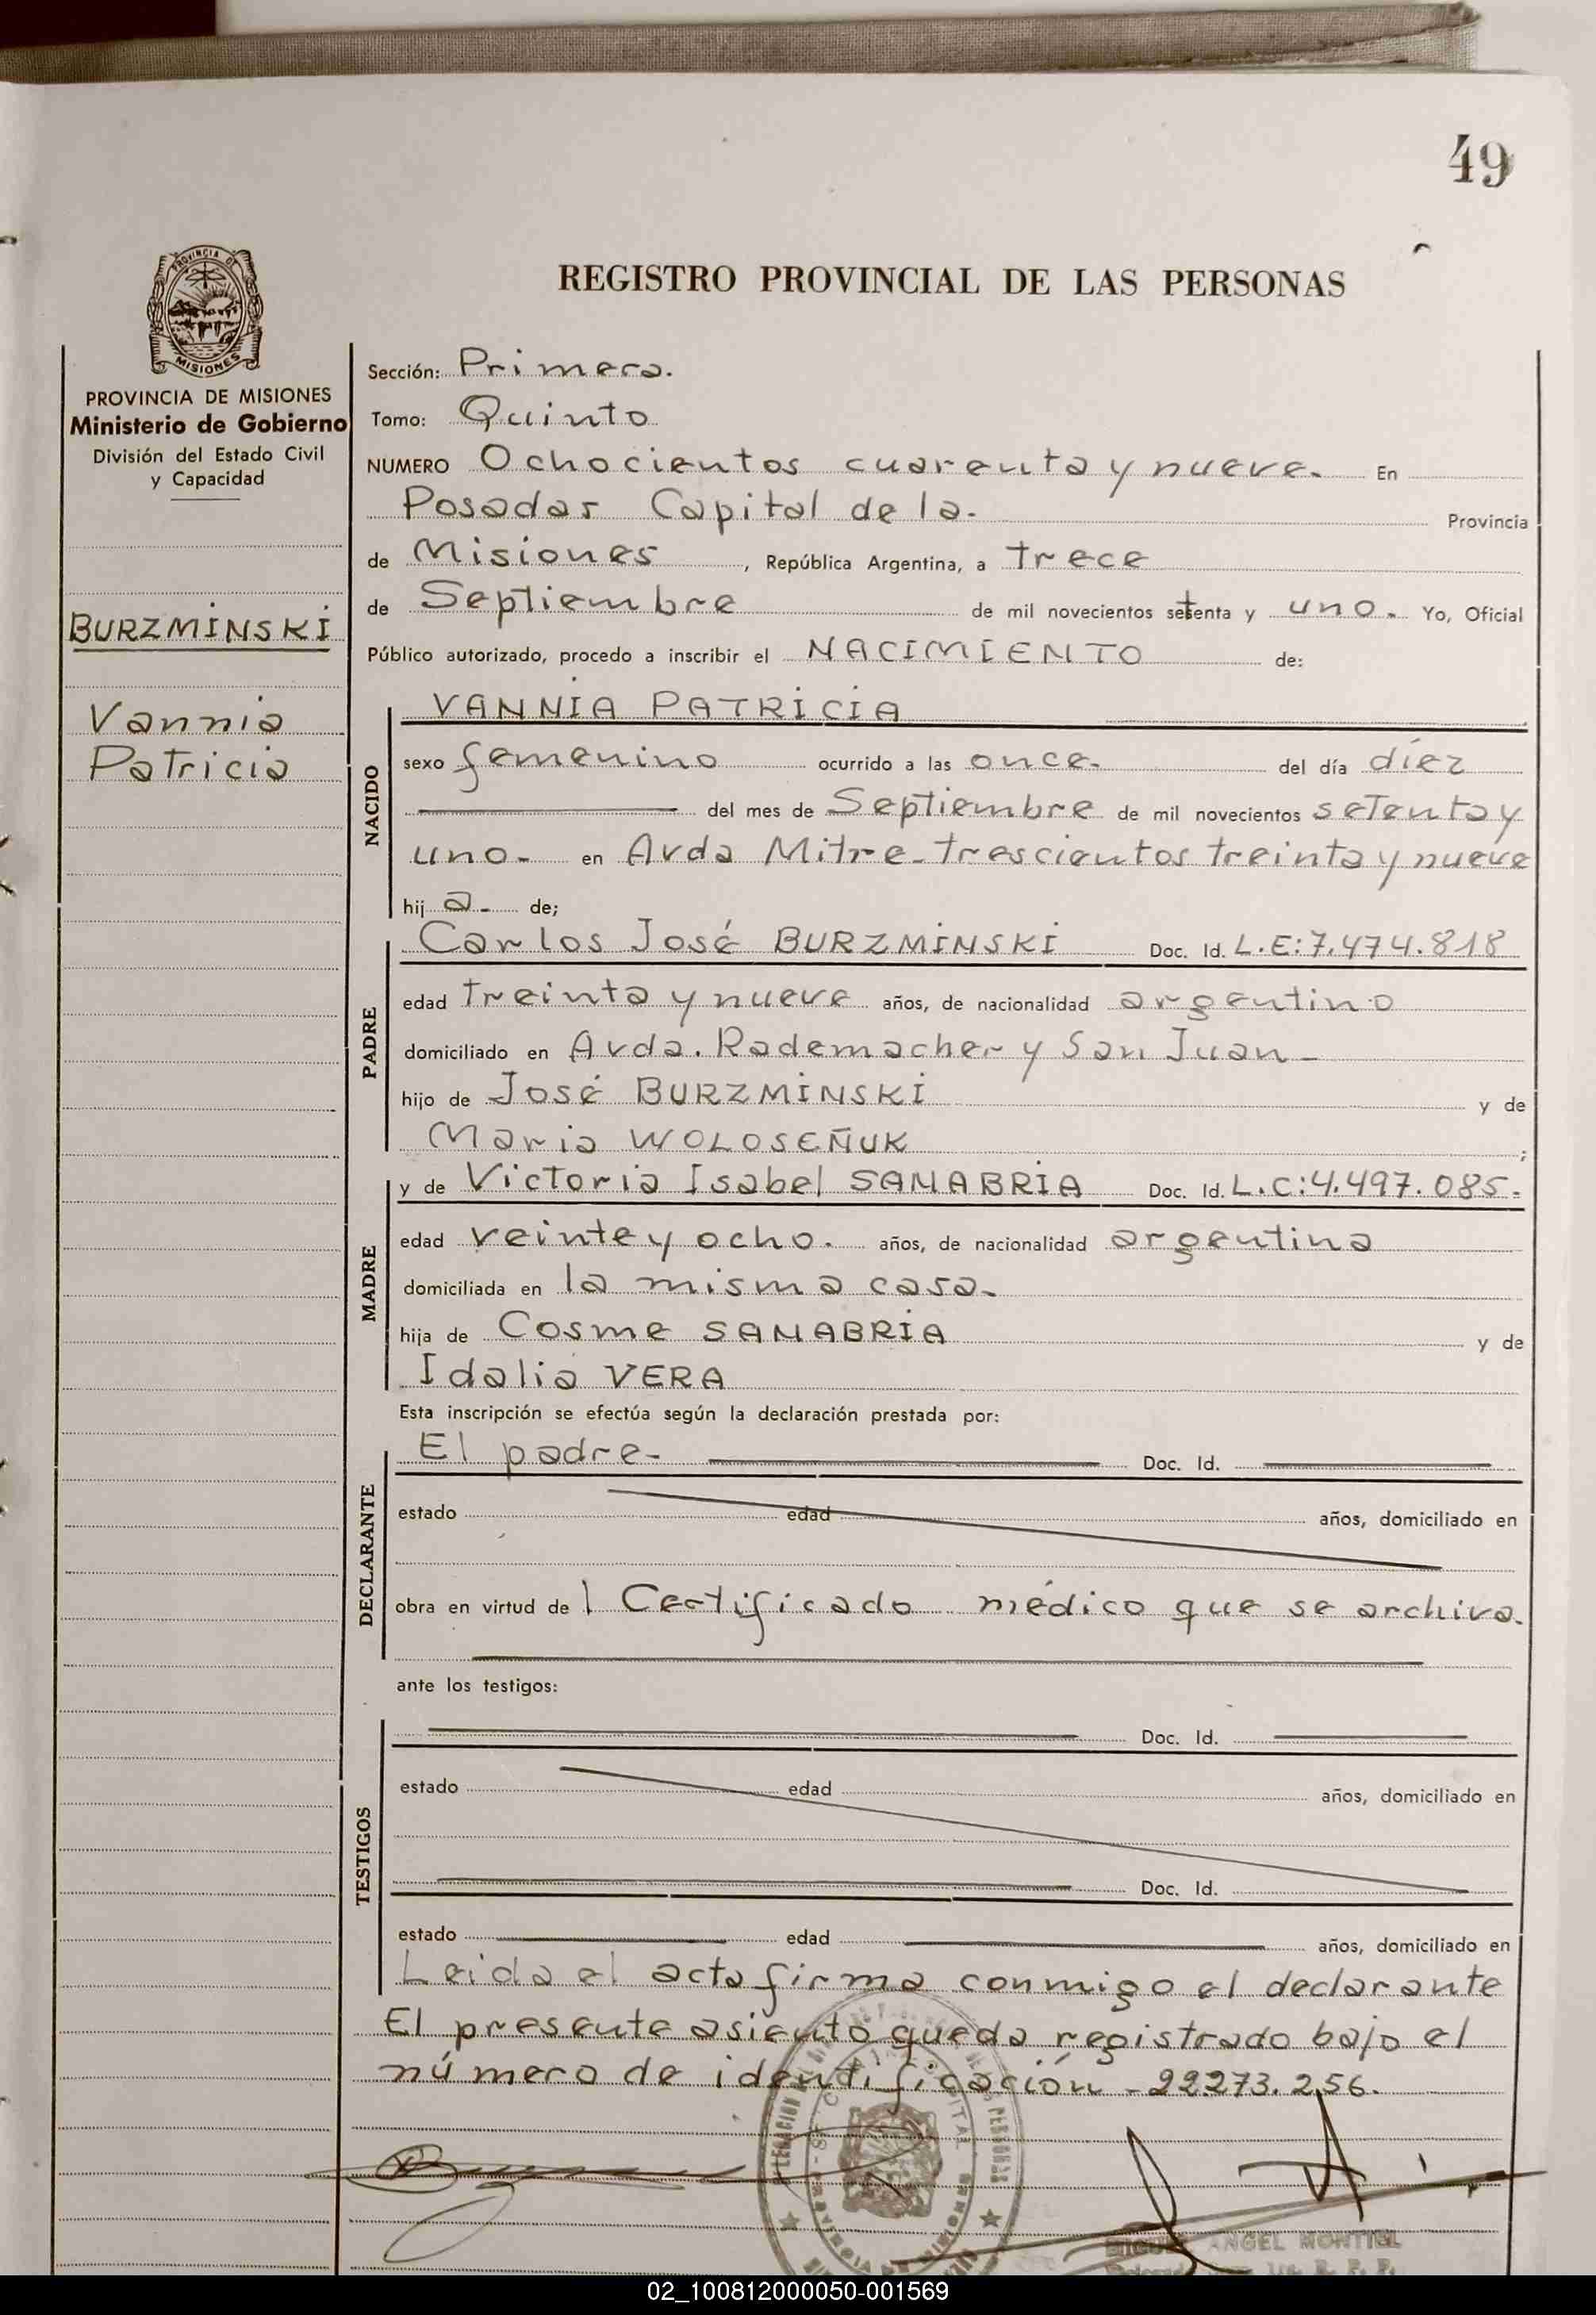 49
REGISTRO PROVINCIAL DE LAS PERSONAS
PROVINCIA DE
MISIONES
PROVINCIA DE MISIONES
Ministerio de Gobierno
División del Estado Civil
y Capacidad
BURZMINSKI
Vannia
Patricia
Sección: Primera.
Tomo: Quinto
NUMERO Ochocientos cuarenta y nueve. En
Posadas Capital de la. Provincia
de Misiones, República Argentina, a Trece
de Septiembre de mil novecientos setenta y uno. Yo, Oficial
Público autorizado, procedo a inscribir el NACIMIENTO de:
NACIDO
VANNIA PATRICIA
sexo femenino ocurrido a las once. del día diez
del mes de Septiembre de mil novecientos setenta y
uno- en Avda Mitre-trescientos treinta y nueve
hij a- de;
PADRE
Carlos José BURZMINSKI Doc. Id. L.E:7.474.818
edad treinta y nueve años, de nacionalidad argentino
domiciliado en Avda. Rademacher y San Juan-
hijo de José BURZMINSKI y de
Maria WOLOSEÑUK;
MADRE
y de Victoria Isabel SANABRIA Doc. Id. L.C:4.497.085.
edad veinte y ocho. años, de nacionalidad argentina
domiciliada en la misma casa.
hija de Cosme SANABRIA y de
Idalia VERA
Esta inscripción se efectúa según la declaración prestada por:
DECLARANTE
El padre- Doc. Id.
estado edad años, domiciliado en
obra en virtud de l Certificado médico que se archiva.
ante los testigos:
TESTIGOS
Doc. Id.
estado edad años, domiciliado en
Doc. Id.
estado edad años, domiciliado en
Leida el acta firma conmigo el declarante
El presente asiento queda registrado bajo el
número de identificación -22273.256.
ANGEL MONTIEL
02_100812000050-001569